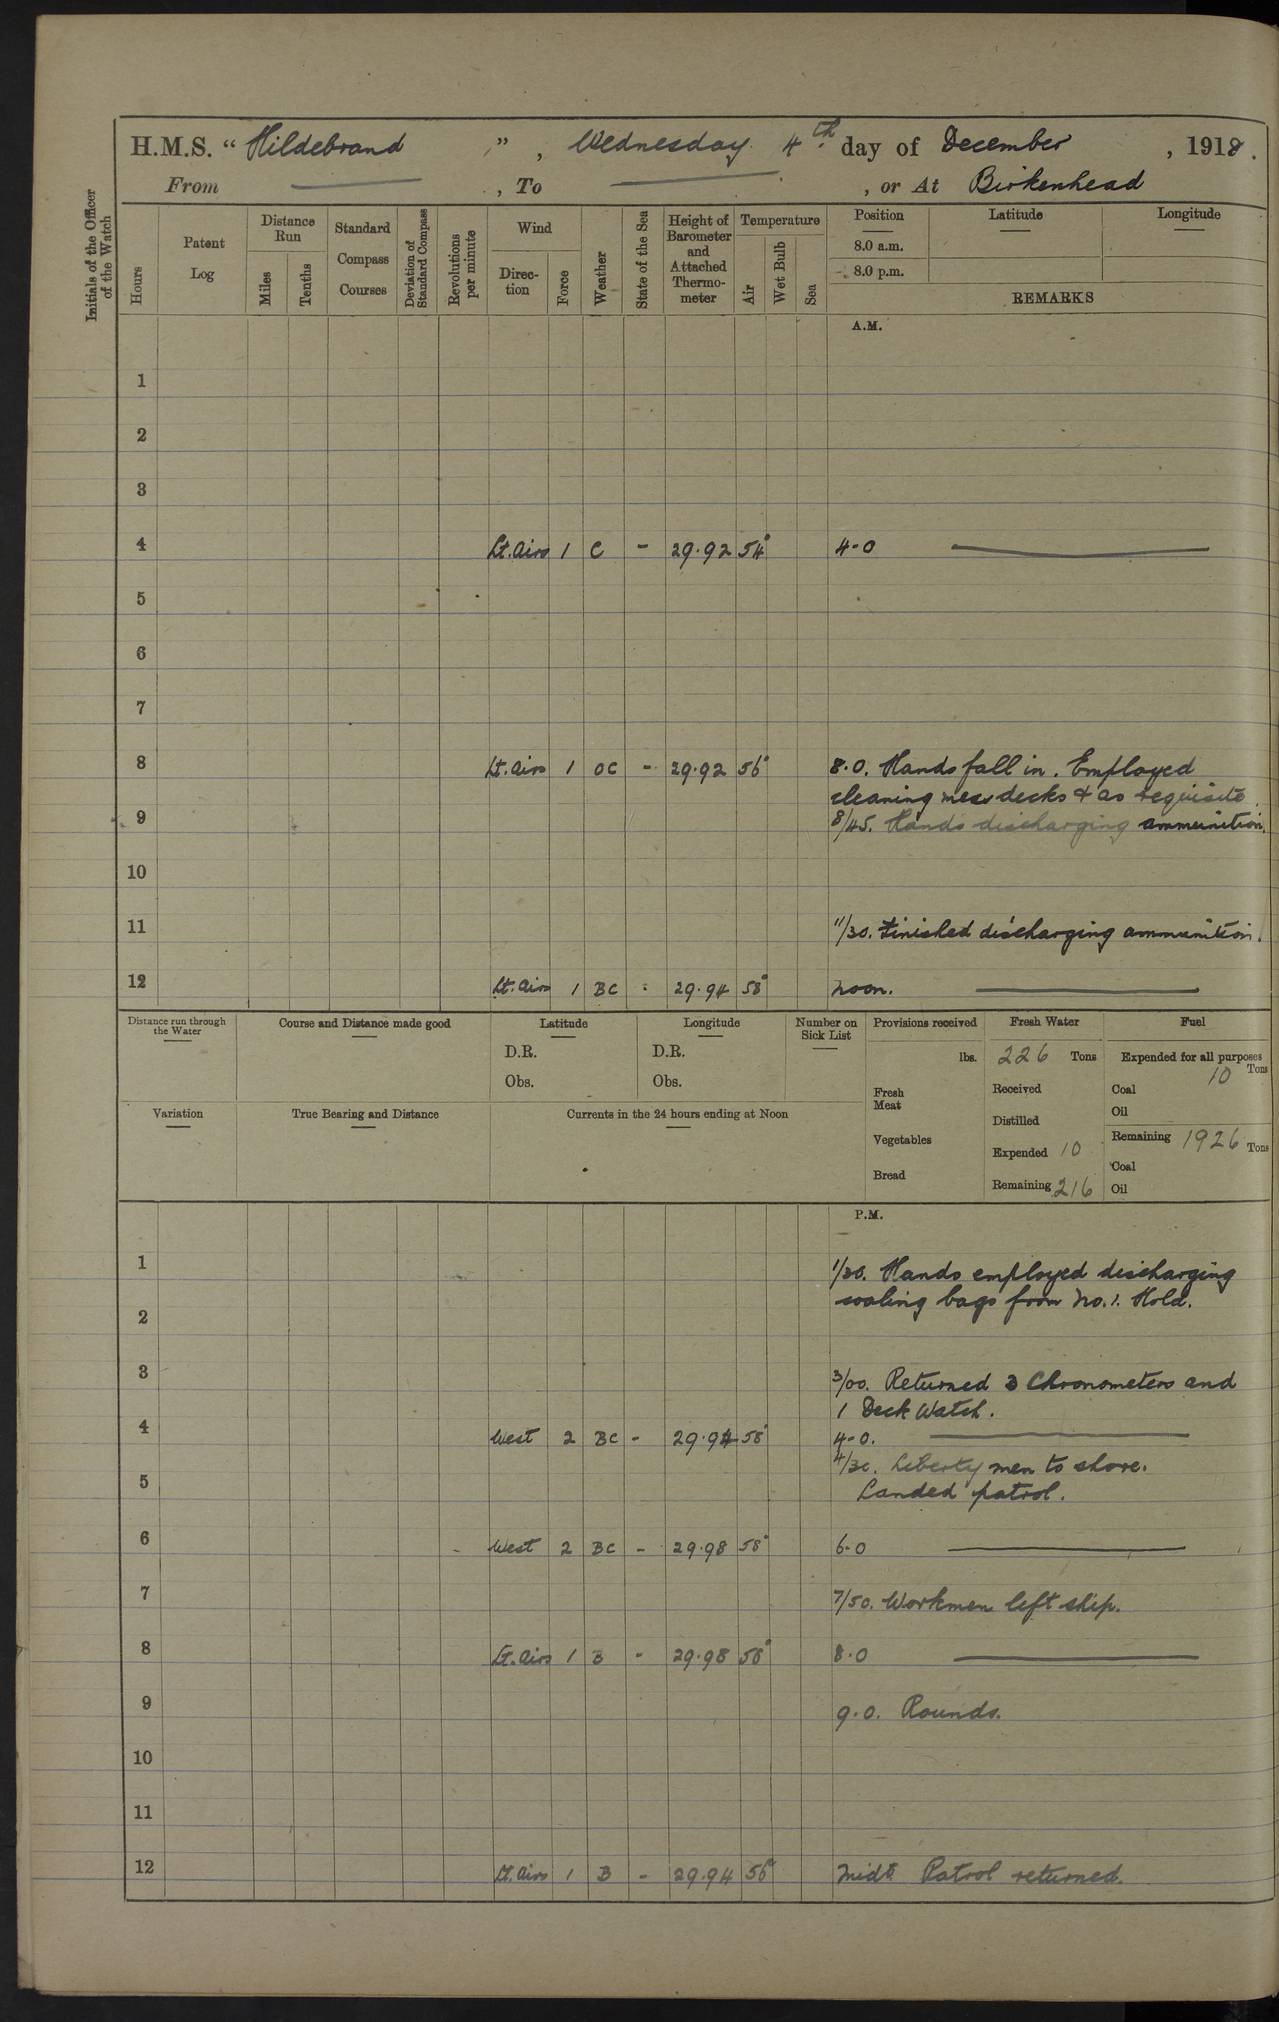 H.M.S. “ Hildebrand ” , Wednesday 4th day of December , 1918 .
From ——— , To ——— , or At Birkenhead
Initials of the Officer of the Watch
Hours
Patent Log
Distance Run
Miles
Tenths
Standard Compass Courses
Deviation of Standard Compass
Revolutions per minute
Wind
Direc-tion
Force
Weather
State of the Sea
Height of Barometer and Attached Thermo-meter
Temperature
Air
Wet Bulb
Sea
Position
8.0 a.m.
8.0 p.m.
Latitude
Longitude
REMARKS
A.M.
1
2
3
4 Lt. Airs 1 C - 29.92 54° 4-0 ———
5
6
7
8 Lt. Airs 1 OC - 29.92 56° 8.0. Hands fall in. Employed
cleaning mess decks & as requisite.
9 8/45. Hands discharging ammunition.
10
11 11/30. Finished discharging ammunition.
12 Lt. Airs 1 BC - 29.94 58° Noon. ———
Distance run through the Water
Course and Distance made good
Latitude
D.R.
Obs.
Longitude
D.R.
Obs.
Number on Sick List
Provisions received
lbs.
Fresh Meat
Vegetables
Bread
Fresh Water
226 Tons
Received
Distilled
Expended 10
Remaining 216
Fuel
Expended for all purposes
10 Tons
Coal
Oil
Remaining 1926 Tons
Coal
Oil
Variation
True Bearing and Distance
Currents in the 24 hours ending at Noon
P.M.
1 1/30. Hands employed discharging
coaling bags from No. 1. Hold.
2
3 3/00. Returned 3 Chronometers and
1 Deck Watch.
4 West 2 BC - 29.94 58° 4-0. ———
4/30. Liberty men to shore.
5 Landed patrol.
6 West 2 BC - 29.98 58° 6-0 ———
7 7/50. Workmen left ship.
8 Lt. Airs 1 B - 29.98 58° 8.0 ———
9 9.0. Rounds.
10
11
12 Lt. Airs 1 B - 29.94 56° Midt. Patrol returned.